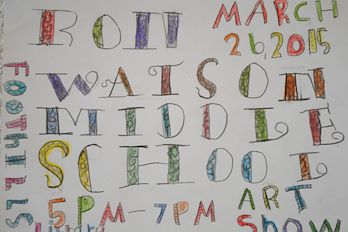 RON
MARCH
26 2015
WATSON
MIDDLE
SCHOOL
FOOTHILLS
5PM-7PM
ART
SHOW